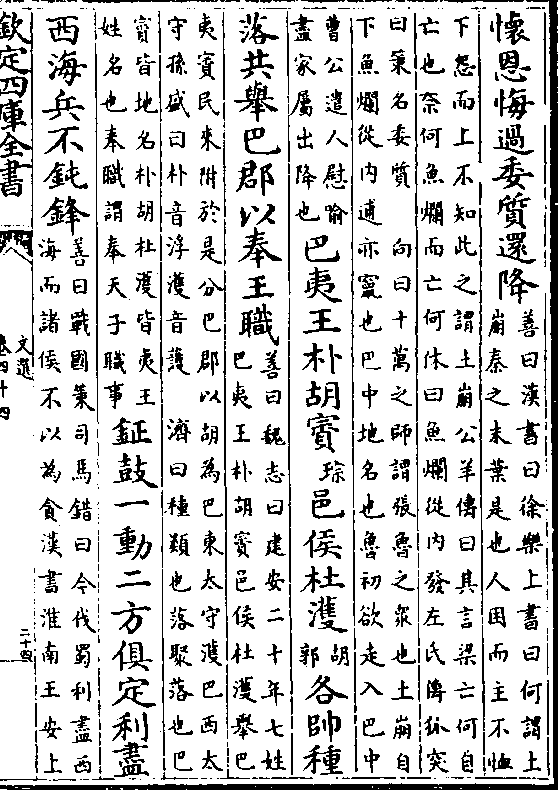 懷恩悔過委質還降
善曰漢書曰徐樂上書曰何謂土
崩秦之末葉是也人困而主不恤
下怨而上不知此之謂土崩公羊傳曰其言梁亡何自
亡也奈何魚爛而亡何休曰魚爛從内發左氏傳狐突
曰策名委質 向曰十萬之師謂張魯之衆也土崩自
下魚爛從内逋亦竄也巴中地名也魯初欲走入巴中
曹公遣人慰喻
盡家屬出降也
巴夷王朴胡賨
琮
邑侯杜濩
胡
郭
各帥種
落共舉巴郡以奉王職
善曰魏志曰建安二十年七姓
巴夷王朴胡賨邑侯杜濩舉巴
夷賨民來附於是分巴郡以胡為巴東太守濩巴西太
守孫盛曰朴音浮濩音護 濟曰種類也落聚落也巴
賨皆地名朴胡杜濩皆夷王
姓名也奉職謂奉天子職事
鉦鼓一動二方俱定利盡
西海兵不鈍鋒
善曰戰國策司馬錯曰今伐蜀利盡西
海而諸侯不以為貪漢書淮南王安上
欽定四庫全書
文選
卷四十四
二十四